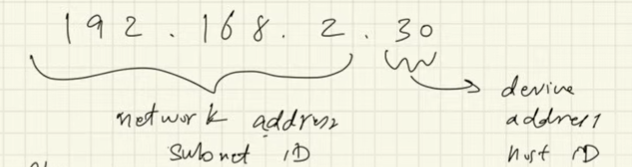 192.168.2.30
network address
subnet ID
device
address
host ID